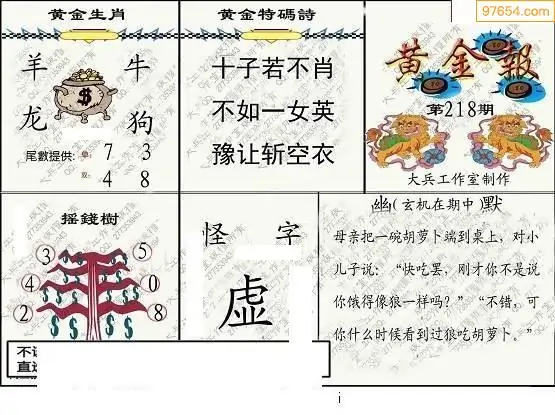 97654.com
黄金生肖
羊 牛
龙 狗
尾數提供: 單: 7 3
双: 4 8
黄金特碼詩
十子若不肖
不如一女英
豫让斩空衣
黄金報
第218期
大兵工作室制作
摇錢樹
3 5
4 0
2 8
怪 字
虚
幽(玄机在期中)默
母亲把一碗胡萝卜端到桌上，对小
儿子说：“快吃罢，刚才你不是说
你饿得像狼一样吗？”“不错，可
你什么时候看到过狼吃胡萝卜。”
i